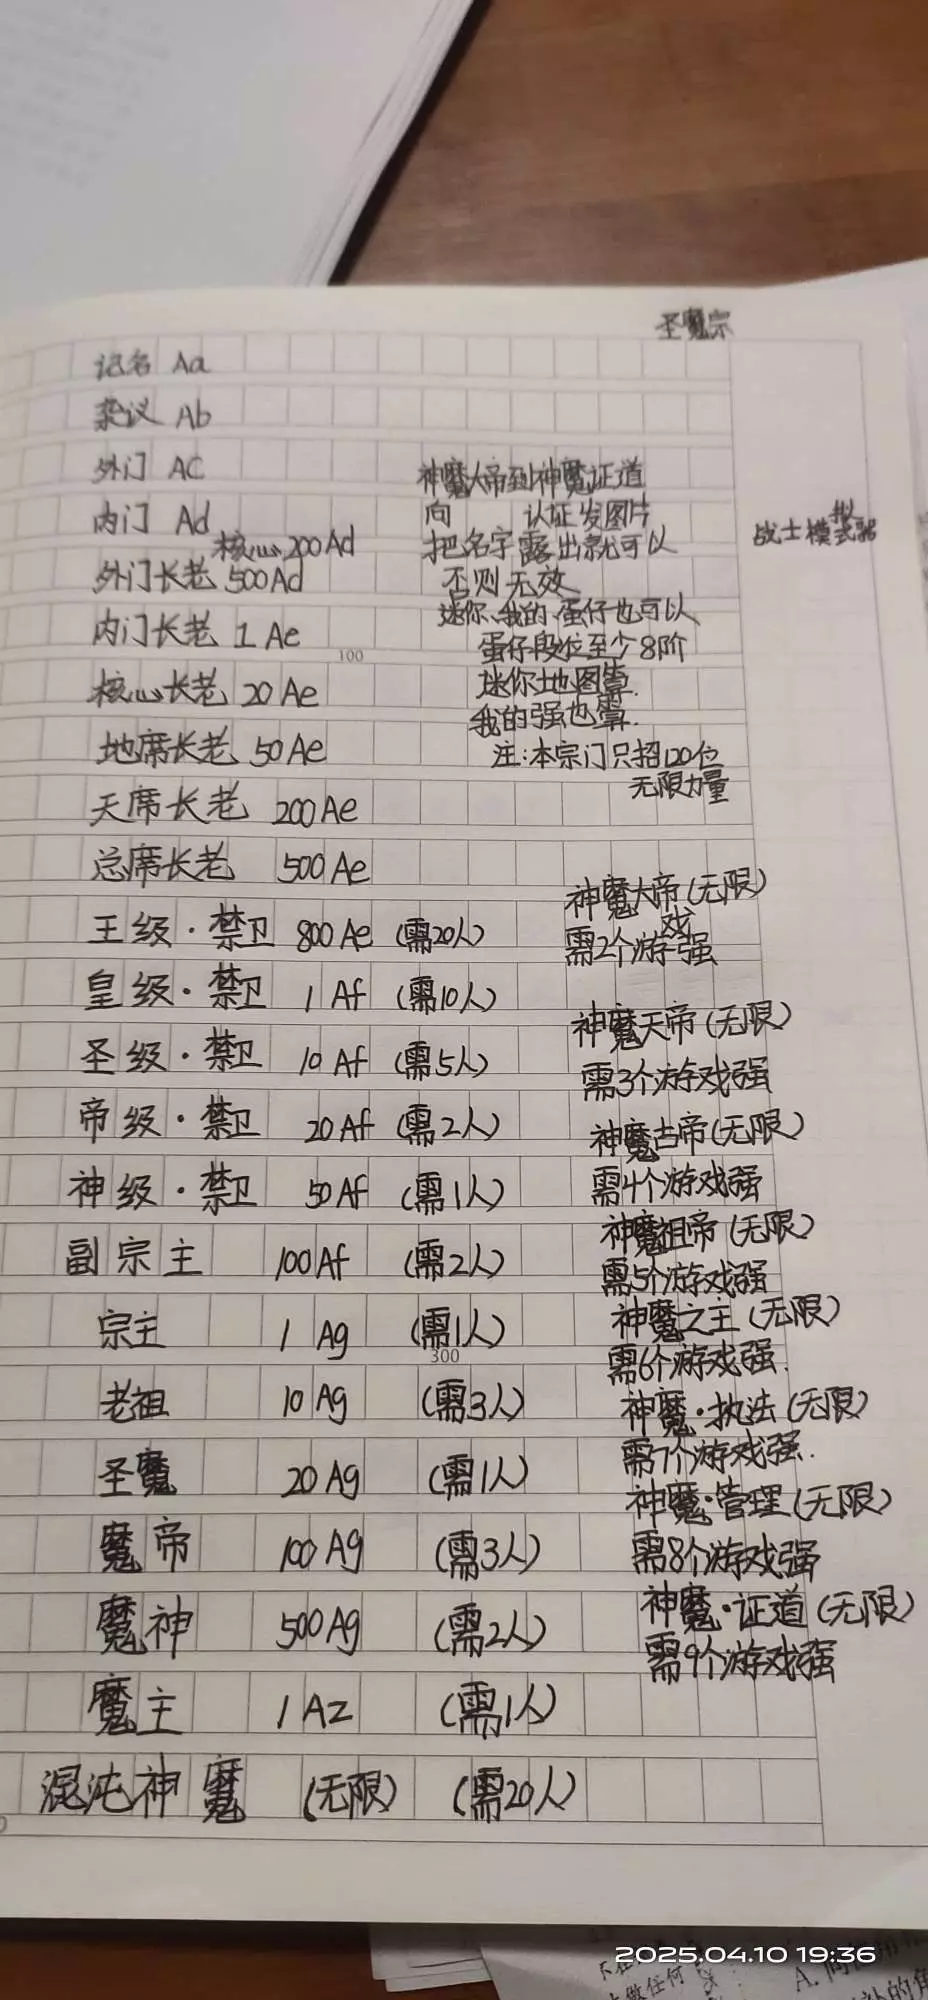 圣魔宗
记名 Aa
杂议 Ab
外门 AC
内门 Ad
核心 200Ad
外门长老 500Ad
内门长老 1 Ae
100
核心长老 20 Ae
地席长老 50 Ae
天席长老 200 Ae
总席长老 500 Ae
王级·禁卫 800 Ae (需20人)
皇级·禁卫 1 Af (需10人)
圣级·禁卫 10 Af (需5人)
帝级·禁卫 20 Af (需2人)
神级·禁卫 50 Af (需1人)
副宗主 100 Af (需2人)
宗主 1 Ag (需1人)
300
老祖 10 Ag (需3人)
圣魔 20 Ag (需1人)
魔帝 100 Ag (需3人)
魔神 500 Ag (需2人)
魔主 1 Az (需1人)
混沌神魔 (无限) (需20人)
神魔大帝到神魔证道
向 认证发图片
把名字露出就可以
否则无效
迷你、我的、蛋仔也可以
蛋仔段位至少8阶
迷你地图算.
我的强也算.
注:本宗门只招120位
无限力量
神魔大帝(无限)
需2个游戏强
神魔天帝(无限)
需3个游戏强
神魔古帝(无限)
需4个游戏强
神魔祖帝(无限)
需5个游戏强
神魔之主(无限)
需6个游戏强.
神魔·执法(无限)
需7个游戏强.
神魔·管理(无限)
需8个游戏强
神魔·证道(无限)
需9个游戏强
战士模拟器
2025.04.10 19:36
做任何